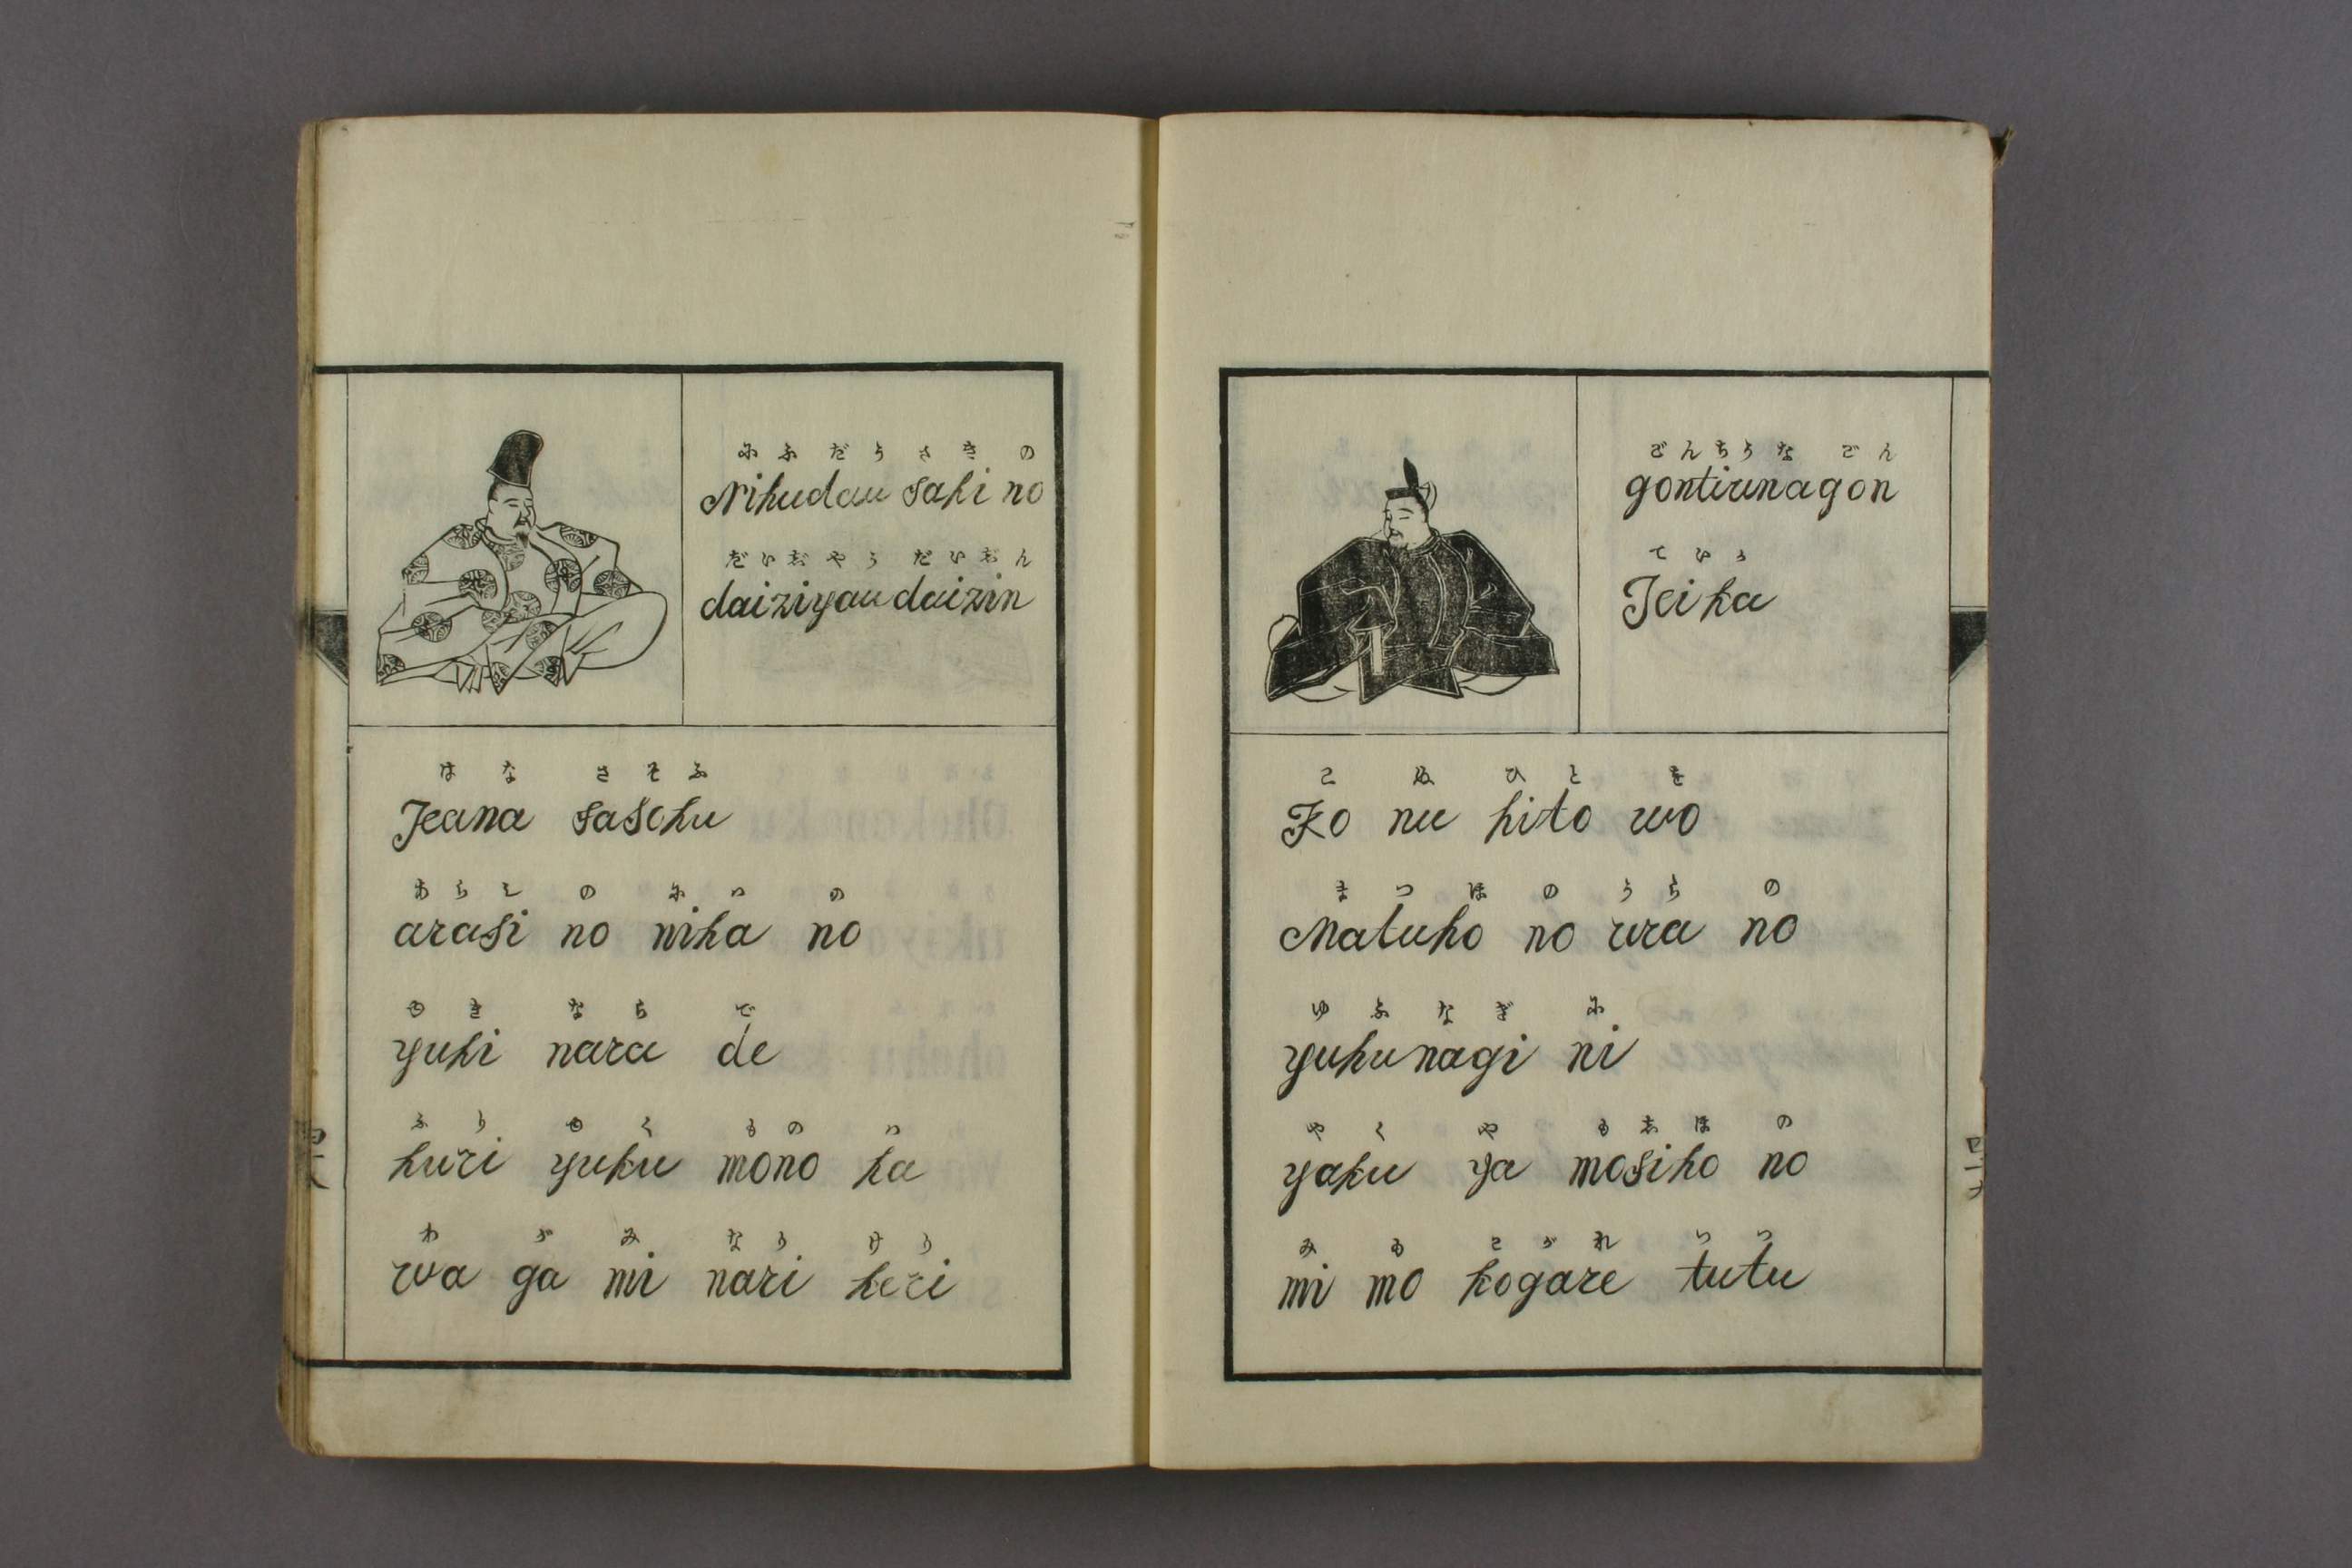 にふだうさきの
Nihudau saki no
だいじやうだいじん
daiziyau daizin
はな さそふ
Hana sasohu
あらし の には の
arasi no niha no
ゆき なら で
yuki nara de
ふり ゆく もの ハ
huri yuku mono ha
わ が み なり けり
wa ga mi nari keri
ごんちうなごん
gontiunagon
ていか
Teika
こ ぬ ひと を
Ko nu hito wo
まつほ の うら の
Matuho no ura no
ゆふなぎ に
yuhunagi ni
やく や もしほ の
yaku ya mosiho no
み も こがれ つつ
mi mo kogare tutu